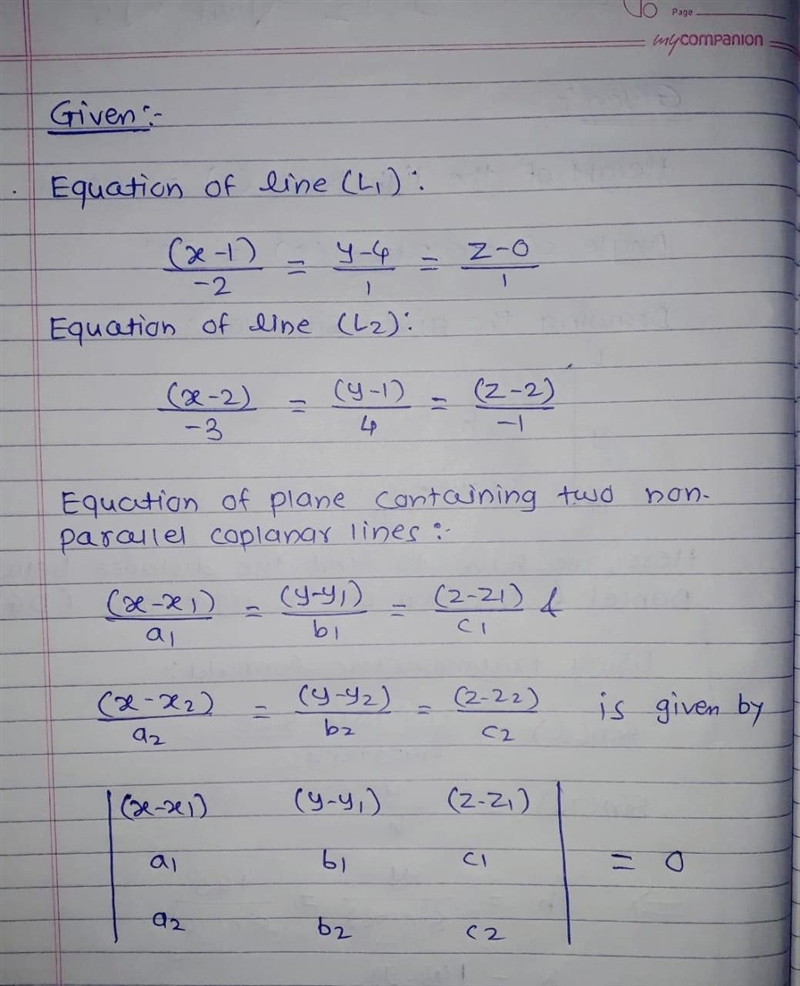 Page
mycompanion
Given:-
Equation of line (L1):
(x-1)/-2 = y-4/1 = z-0/1
Equation of line (L2):
(x-2)/-3 = (y-1)/4 = (z-2)/-1
Equation of plane containing two non-
parallel coplanar lines:-
(x-x1)/a1 = (y-y1)/b1 = (z-z1)/c1 &
(x-x2)/a2 = (y-y2)/b2 = (z-z2)/c2 is given by
|(x-x1) (y-y1) (z-z1)|
|a1 b1 c1| = 0
|a2 b2 c2|